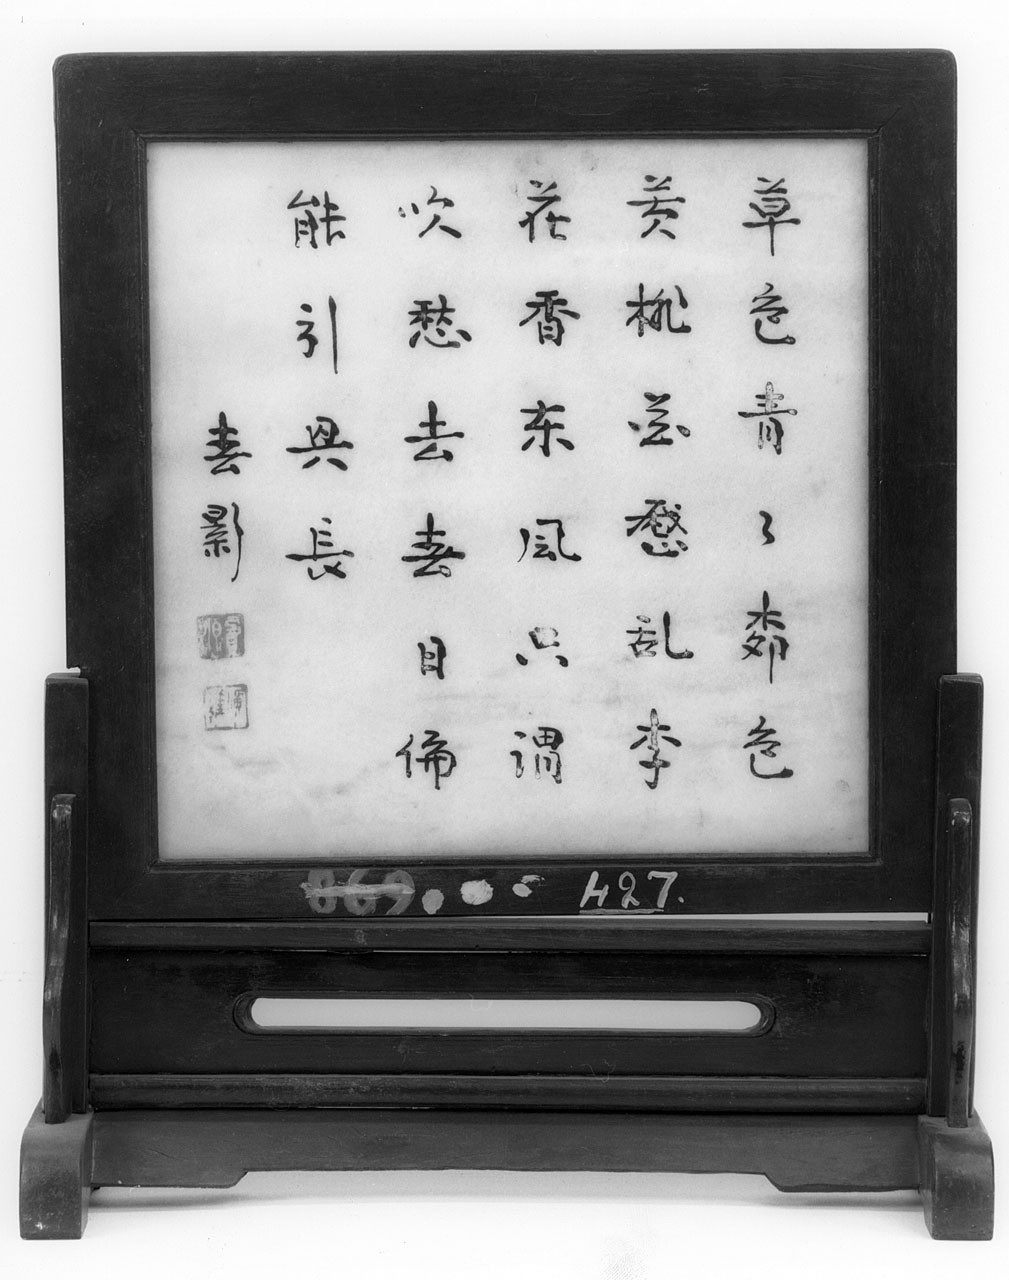 草色青〻桺色
黄桃花乱李
花香东風只謂
吹愁去春日偏
能引長
春影
869
427.